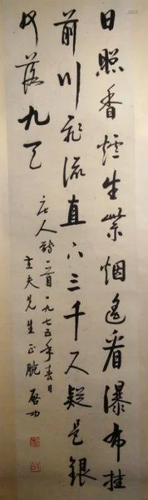 日照香爐生紫烟遙看瀑布挂
前川飛流直下三千尺疑是銀
河落九天
唐人詩一首一九七五年春日
夫先生正腕 启功